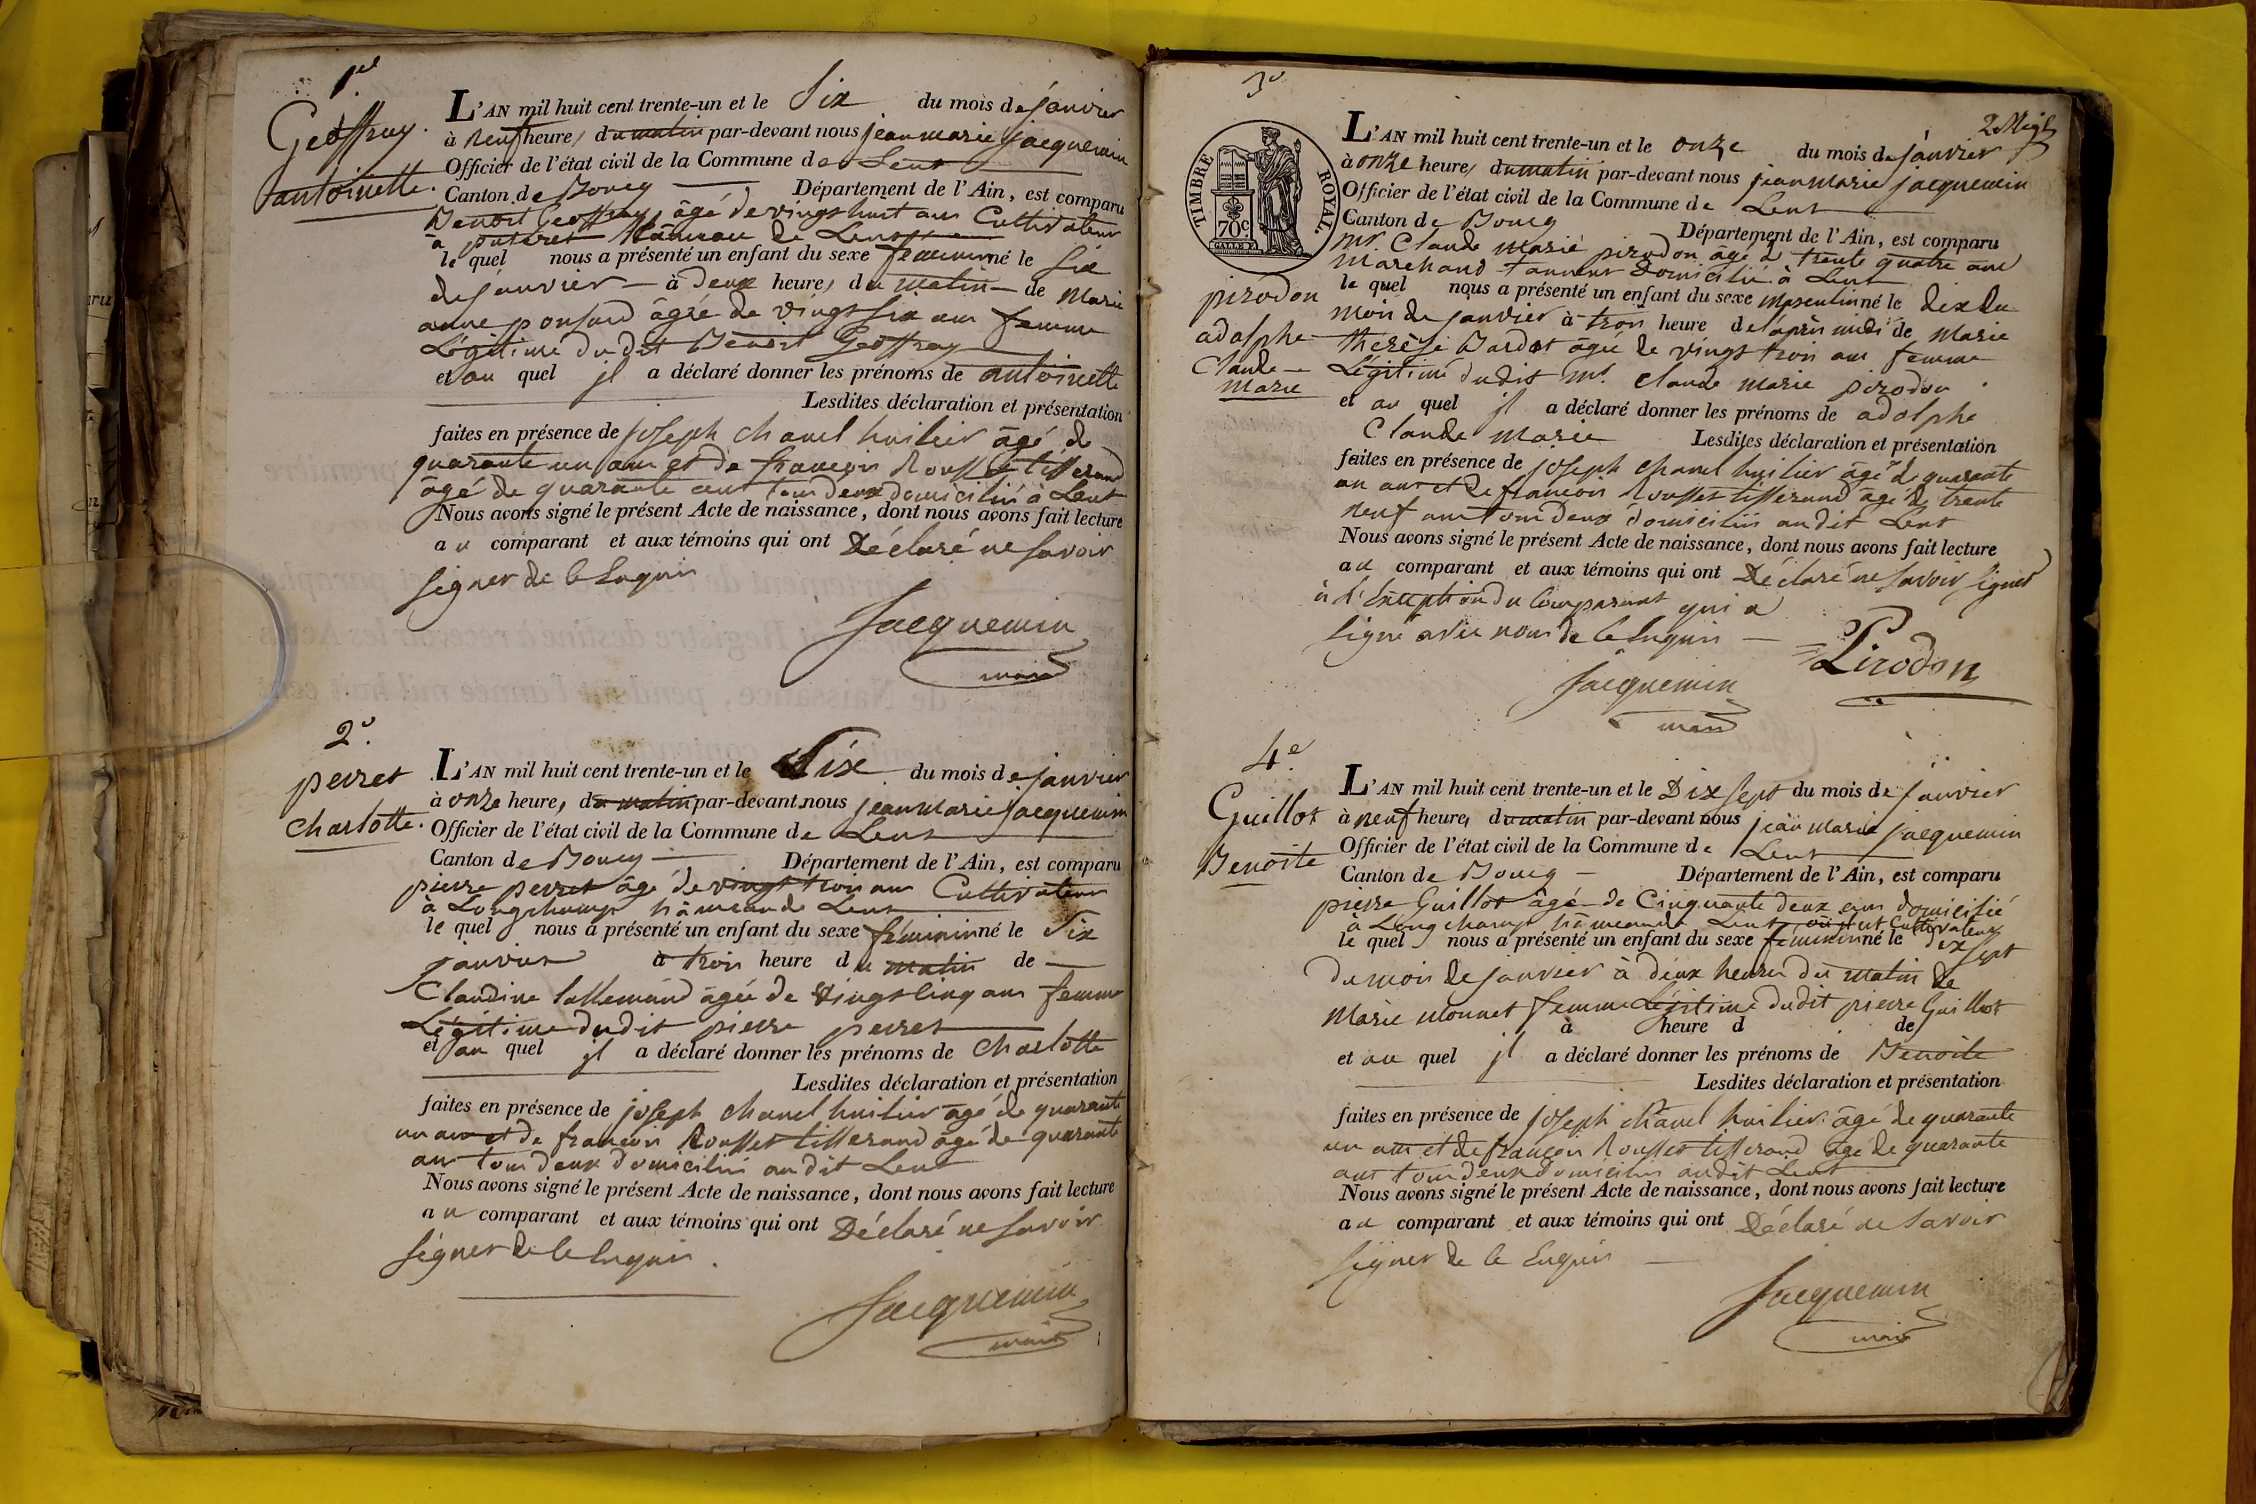 1er
Geoffray
antoinette.
L'AN mil huit cent trente-un et le Six du mois de janvier
à neuf heures du matin par-devant nous jean marie jacquemin
Officier de l'état civil de la Commune de Lent
Canton de Bourg Département de l'Ain, est comparu
Benoit Geoffray âgé de vingt huit ans Cultivateur
à hâmeau de Lent
le quel nous a présenté un enfant du sexe féminin né le Six
de janvier à deux heures du matin de Marie
anne ponsard âgée de vingt six ans femme
Légitime dudit Benoit Geoffray
et au quel il a déclaré donner les prénoms de antoinette
Lesdites déclaration et présentation
faites en présence de joseph chanel huilier âgé de
quarante un ans et de françois Rousset tisserand
âgé de quarante ans tous deux domiciliés à Lent
Nous avons signé le présent Acte de naissance, dont nous avons fait lecture
au comparant et aux témoins qui ont Déclaré ne savoir
signer de ce Enquis
Jacquemin
maire
2e
perret
charlotte.
L'AN mil huit cent trente-un et le Six du mois de janvier
à onze heures du matin par-devant nous jean marie jacquemin
Officier de l'état civil de la Commune de Lent
Canton de Bourg Département de l'Ain, est comparu
pierre perret âgé de vingt trois ans Cultivateur
à Longchamp hâmeau de Lent
le quel nous a présenté un enfant du sexe féminin né le Six
janvier à trois heure du matin de
Claudine Lallemand âgée de vingt cinq ans femme
Légitime dudit pierre perret
et au quel il a déclaré donner les prénoms de charlotte
Lesdites déclaration et présentation
faites en présence de joseph chanel huilier âgé de quarante
un ans et de françois Rousset tisserand âgé de quarante
ans tous deux domiciliés au dit Lent
Nous avons signé le présent Acte de naissance, dont nous avons fait lecture
au comparant et aux témoins qui ont Déclaré ne savoir
signer de ce Enquis.
Jacquemin
maire
3e
TIMBRE ROYAL.
70c
pirodon
adolphe
Claude
marie
L'AN mil huit cent trente-un et le onze du mois de janvier
à onze heures du matin par-devant nous jean marie jacquemin
Officier de l'état civil de la Commune de Lent
Canton de Bourg Département de l'Ain, est comparu
mr. Claude marie pirodon âgé de trente quatre ans
marchand tanneur domicilié à Lent
le quel nous a présenté un enfant du sexe masculin né le dix du
mois de janvier à trois heure de l'après midi de Marie
thérèse Bardet âgée de vingt trois ans femme
Légitime dudit mr. Claude marie pirodon
et au quel il a déclaré donner les prénoms de adolphe
Claude marie Lesdites déclaration et présentation
faites en présence de joseph chanel huilier âgé de quarante
un ans et de françois Rousset tisserand âgé de trente
neuf ans tous deux domiciliés au dit Lent
Nous avons signé le présent Acte de naissance, dont nous avons fait lecture
au comparant et aux témoins qui ont Déclaré ne savoir signer
à l'Exception du Comparant qui a
signé avec nous de ce Enquis
Pirodon
Jacquemin
maire
4e
Guillot
Benoite
L'AN mil huit cent trente-un et le Dix sept du mois de janvier
à neuf heures du matin par-devant nous jean marie jacquemin
Officier de l'état civil de la Commune de Lent
Canton de Bourg Département de l'Ain, est comparu
pierre Guillot âgé de Cinquante deux ans domicilié
à Longchamp hâmeau de Lent Cultivateur
le quel nous a présenté un enfant du sexe féminin né le dix sept
du mois de janvier à deux heures du matin de
Marie Monnet femme Légitime dudit pierre Guillot
à heure d de
et au quel il a déclaré donner les prénoms de Benoite
Lesdites déclaration et présentation
faites en présence de joseph chanel huilier âgé de quarante
un ans et de françois Rousset tisserand âgé de quarante
ans tous deux domiciliés audit Lent
Nous avons signé le présent Acte de naissance, dont nous avons fait lecture
au comparant et aux témoins qui ont Déclaré ne savoir
signer de ce Enquis
Jacquemin
maire